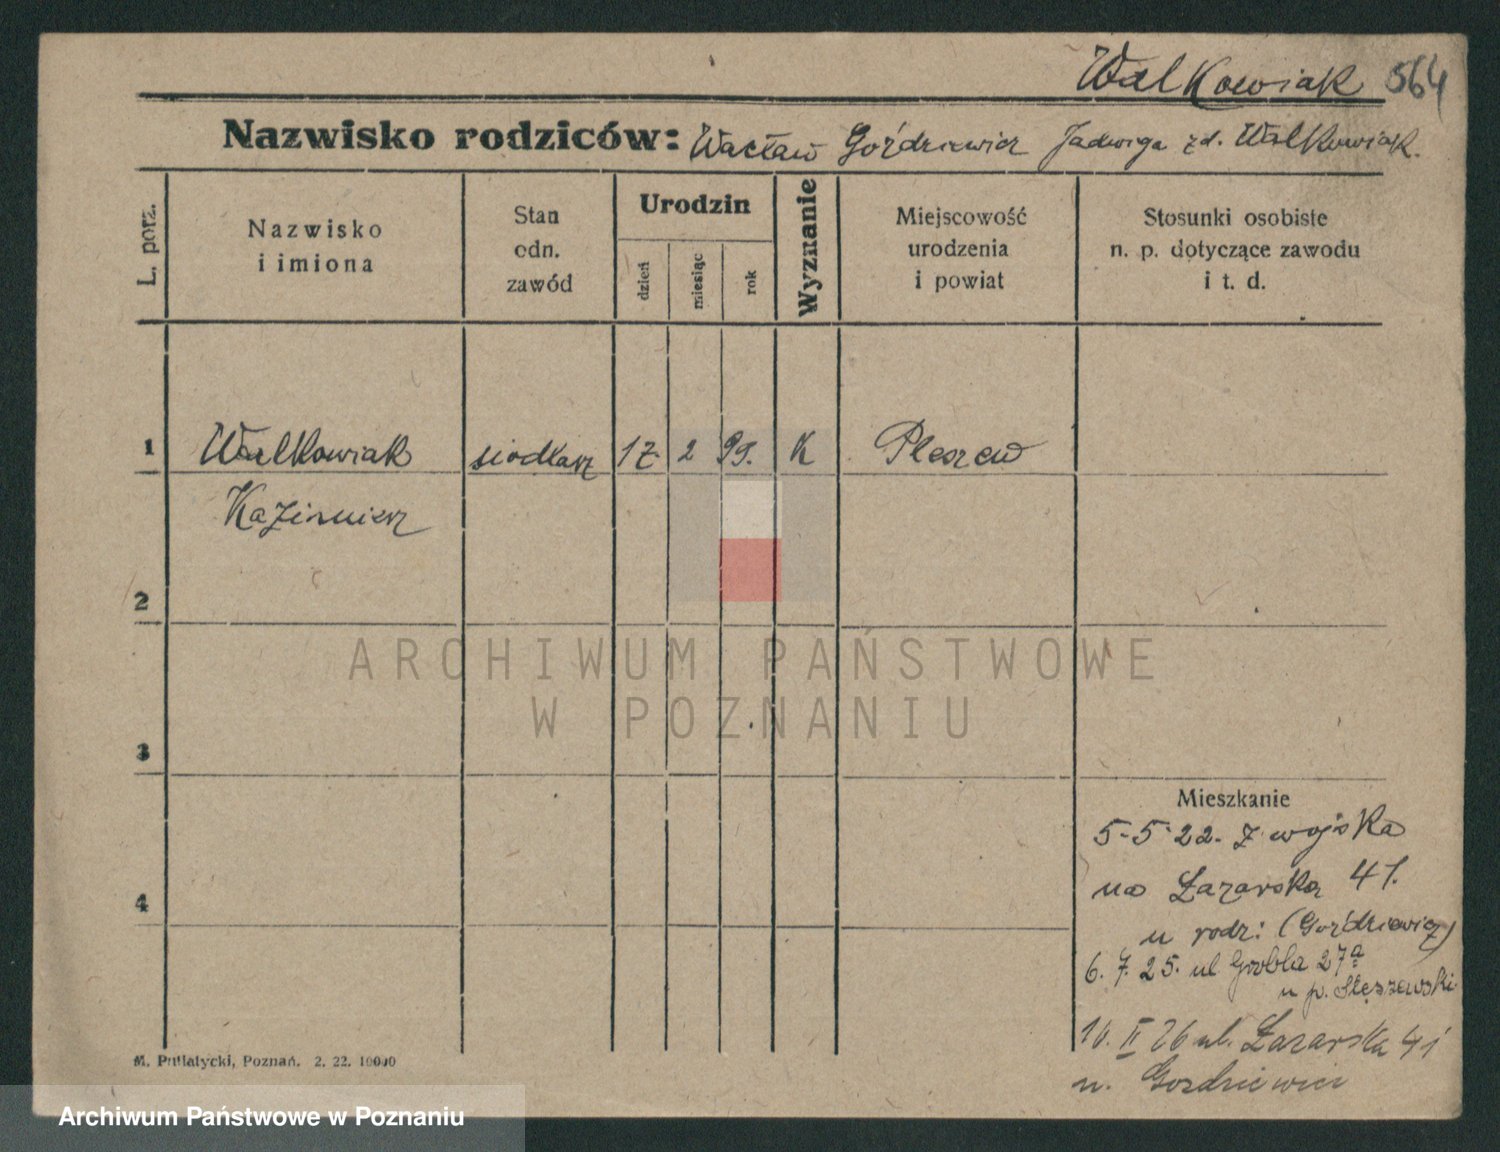 Walkowiak 564
Nazwisko rodziców: Wacław Goździewicz Jadwiga zd. Walkowiak.
L. porz.
Nazwisko
i imiona
Stan
odn.
zawód
Urodzin
dzień
miesiąc
rok
Wyznanie
Miejscowość
urodzenia
i powiat
Stosunki osobiste
n. p. dotyczące zawodu
i t. d.
1 Walkowiak siodlarz 17 2 99. K Pleszew
Kazimierz
2
3
4
Mieszkanie
5-5-22. z wojska
na Łazarska 41.
u rodz: (Goździewicz)
6. 7. 25. ul Grobla 27a
u p. Stęszewski
10. II 26 ul. Łazarska 41
u. Gozdziewicz
M. Putiatycki, Poznań. 2. 22. 10000
ARCHIWUM PAŃSTWOWE
W POZNANIU
Archiwum Państwowe w Poznaniu